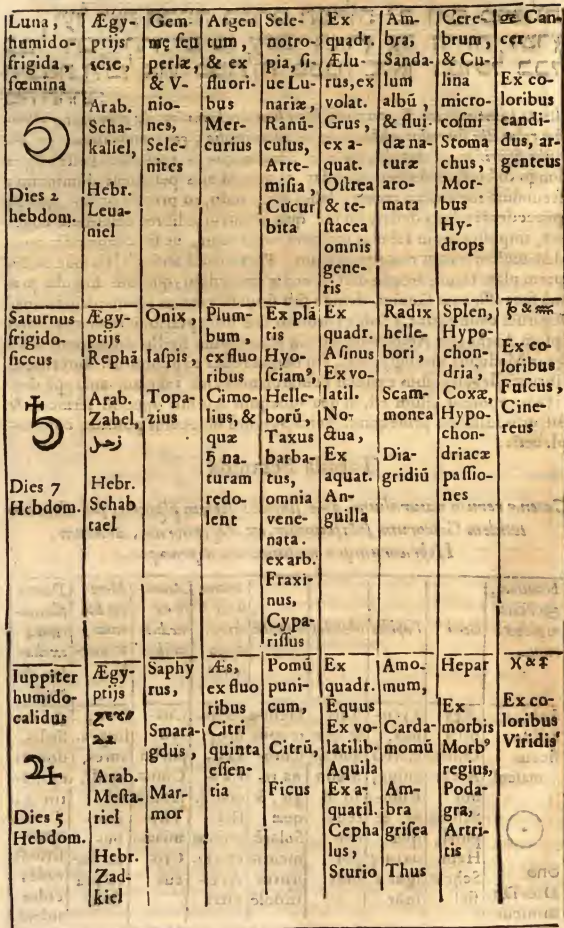 Luna,
humido-
frigida,
fœmina
☽
Dies 2
hebdom.
Ægy-
ptijs
Arab.
Scha-
kaliel,
Hebr.
Leua-
niel
Gem-
mę ſeu
perlæ,
& V-
nio-
nes,
Sele-
nites
Argen
tum,
& ex
fluori-
bus
Mer-
curius
Sele-
notro-
pia, ſi-
ue Lu-
nariæ,
Ranū-
culus,
Arte-
miſia,
Cucur
bita
Ex
quadr.
Ælu-
rus, ex
volat.
Grus,
ex a-
quat.
Oſtrea
& te-
ſtacea
omnis
gene-
ris
Am-
bra,
Sanda-
lum
albū,
& flui-
dæ na-
turæ
aro-
mata
Cere-
brum,
& Cu-
lina
micro-
coſmi
Stoma
chus,
Mor-
bus
Hy-
drops
Can-
cer
Ex co-
loribus
candi-
dus, ar-
genteus
Saturnus
frigido-
ſiccus
♄
Dies 7
Hebdom.
Ægy-
ptijs
Rephā
Arab.
Zahel,
زحل
Hebr.
Schab
tael
Onix,
Iaſpis,
Topa-
zius
Plum-
bum,
ex fluo
ribus
Cimo-
lius, &
quæ
♄ na-
turam
redo-
lent
Ex plā
tis
Hyo-
ſciamꝰ,
Helle-
borū,
Taxus
barba-
tus,
omnia
vene-
nata.
ex arb.
Fraxi-
nus,
Cypa-
riſſus
Ex
quadr.
Aſinus
Ex vo-
latil.
No-
ctua,
Ex
aquat.
An-
guilla
Radix
helle-
bori,
Scam-
monea
Dia-
gridiū
Splen,
Hypo-
chon-
dria,
Coxæ,
Hypo-
chon-
driacæ
paſſio-
nes
♑ & ♒
Ex co-
loribus
Fuſcus,
Cine-
reus
Iuppiter
humido-
calidus
♃
Dies 5
Hebdom.
Ægy-
ptijs
Arab.
Meſta-
riel
Hebr.
Zad-
kiel
Saphy
rus,
Smara-
gdus,
Mar-
mor
Æs,
ex fluo
ribus
Citri
quinta
eſſen-
tia
Pomū
puni-
cum,
Citrū,
Ficus
Ex
quadr.
Equus
Ex vo-
latilib.
Aquila
Ex a-
quatil.
Cepha
lus,
Sturio
Amo-
mum,
Carda-
momū
Am-
bra
griſea
Thus
Hepar
Ex
morbis
Morbꝰ
regius,
Poda-
gra,
Artri-
tis
♓ & ♐
Ex co-
loribus
Viridis